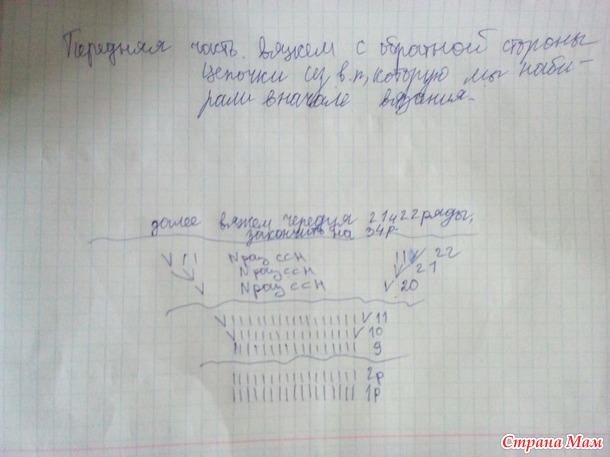 Передняя часть. Вяжем с обратной стороны
цепочки из в.п, которую мы наби-
рали вначале вязания.
далее вяжем чередуя 21 и 22 ряды,
закончить на 34р.
N раз ССН 22
N раз ССН 21
N раз ССН 20
11
10
9
2р
1р
Страна Мам